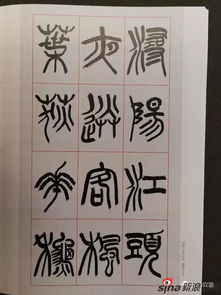 潯陽江頭
夜送客楓
葉荻花秋
sina新浪